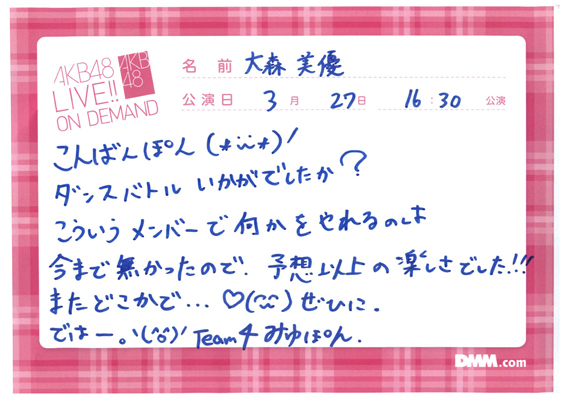 AKB48
LIVE!!
ON DEMAND
AKB
48
名前 大森美優
公演日 3月 27日 16:30 公演
こんばんぽん(*¨*)/
ダンスバトル いかがでしたか?
こういうメンバーで何かをやれるのは
今まで無かったので、予想以上の楽しさでした!!!
またどこかで…♡(^^) ぜひに.
ではー。\(^o^)/ Team4 みゆぽん.
DMM.com